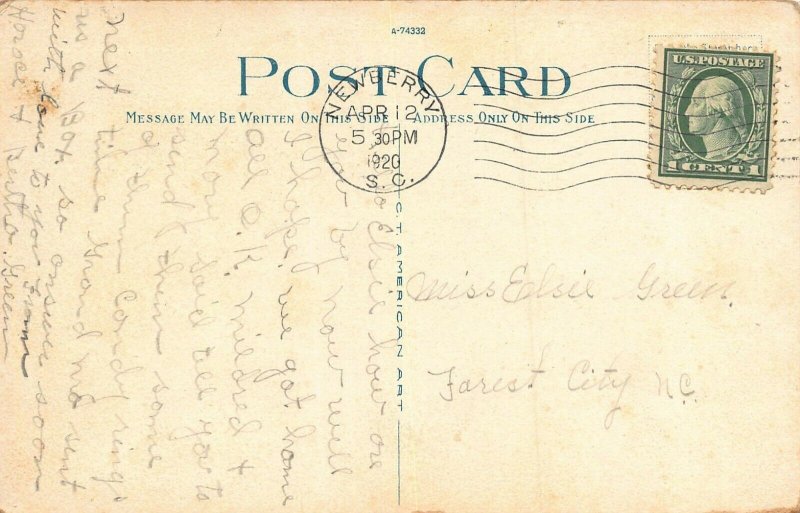 A-74332
POST CARD
MESSAGE MAY BE WRITTEN ON THIS SIDE
ADDRESS ONLY ON THIS SIDE
NEWBERRY
APR 12
5 30 PM
1920
S. C.
U.S. POSTAGE
1 CENT 1
C.T. AMERICAN ART
Miss Edsie Green.
Forest City N.C.
Elsie how are
you by now well
I hope. we got home
all O.K. mildred &
mary said tell you to
send them some
a them Candy rings
next time Grand ma sent
us a Box so answer soon
with love to you from
Horace & Bertha Green